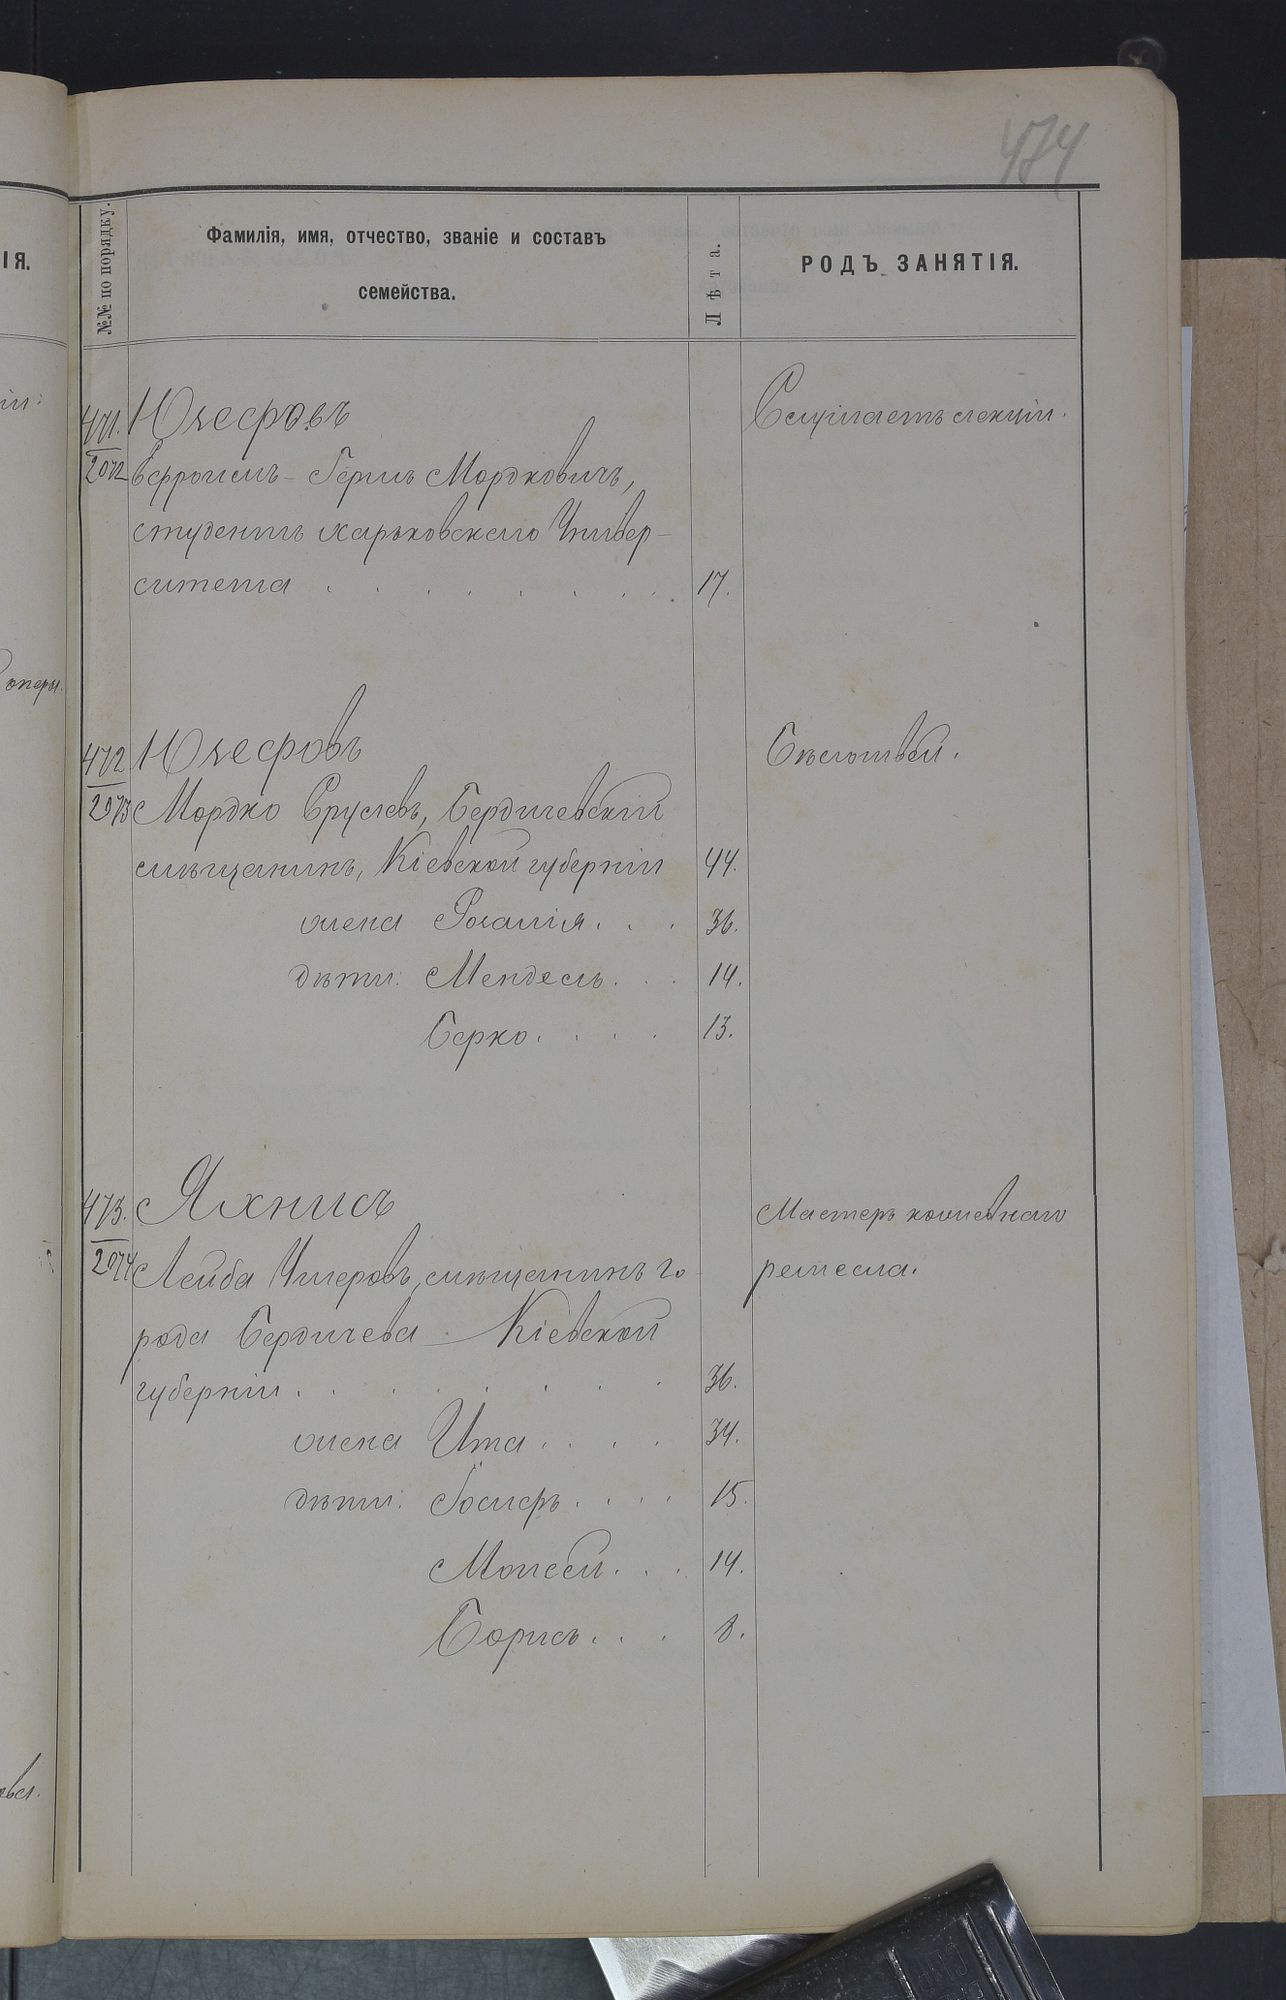 474
№№ по порядку.
Фамилія, имя, отчество, званіе и составъ
семейства.
Лѣта.
РОДЪ ЗАНЯТІЯ.
ІЯ.
471.
2072
Юзефовъ
Слушаетъ лекціи.
Ефроимъ-Герш Мордковичъ,
студентъ Харьковскаго Универ-
ситета . . . . . . . 17.
оперы.
472
2073
Юзефовъ
Мордко Сруслевъ, Бердичевскій
мѣщанинъ, Кіевской губерніи 44.
жена Розалія . . . 36.
дѣти: Мендель . . . 14.
Берко . . . . 13.
473.
2074
Яхнисъ
Мастеръ кошевнаго
ремесла.
Лейба Умеровъ, мѣщанинъ го-
рода Бердичева Кіевской
губерніи . . . . . . . 36.
жена Ита . . . . 34.
дѣти: Іосифъ . . . . 15.
Моисей . . . 14.
Борисъ . . . 8.